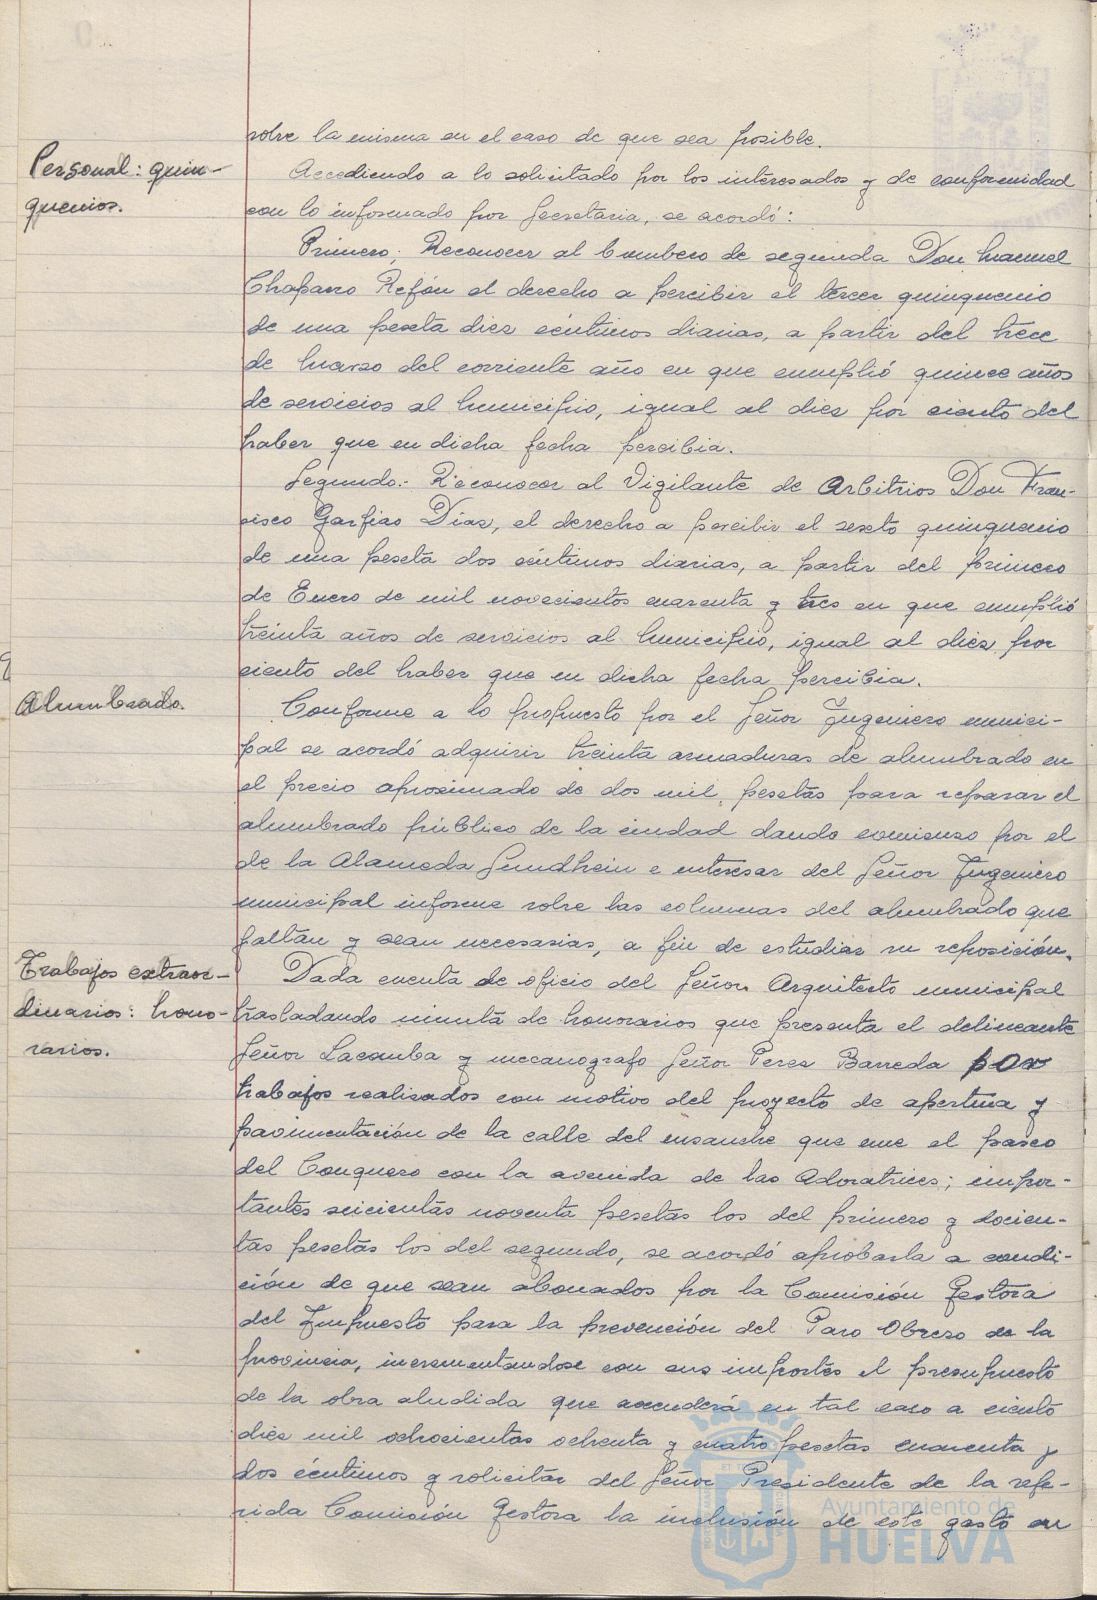 sobre la misma en el caso de que sea posible.
Personal: quin-
quenios.
Accediendo a lo solicitado por los interesados y de conformidad
con lo informado por Secretaria, se acordó:
Primero; Reconocer al bombero de segunda Don Manuel
Chaparro Refón el derecho a percibir el tercer quinquenio
de una peseta diez céntimos diarias, a partir del trece
de Marzo del corriente año en que cumplió quince años
de servicios al Municipio, igual al diez por ciento del
haber que en dicha fecha percibia.
Segundo.- Reconocer al Vigilante de Arbitrios Don Fran-
cisco Garfias Díaz, el derecho a percibir el sexto quinquenio
de una peseta dos céntimos diarias, a partir del primero
de Enero de mil novecientos cuarenta y tres en que cumplió
treinta años de servicios al Municipio, igual al diez por
ciento del haber que en dicha fecha percibia.
Alumbrado.
Conforme a lo propuesto por el Señor Ingeniero munici-
pal se acordó adquirir treinta armaduras de alumbrado en
el precio aproximado de dos mil pesetas para reparar el
alumbrado público de la ciudad dando comienzo por el
de la Alameda Sundhein e interesar del Señor Ingeniero
municipal informe sobre las columnas del alumbrado que
faltan y sean necesarias, a fin de estudiar su reposición.
Trabajos extraor-
dinarios: hono-
rarios.
Dada cuenta de oficio del Señor Arquitecto municipal
trasladando minuta de honorarios que presenta el delineante
Señor Lacomba y mecanografo Señor Perez Barreda por
trabajos realizados con motivo del proyecto de apertura y
pavimentación de la calle del ensanche que une el paseo
del Conquero con la avenida de las Adoratrices; impor-
tantes seicientas noventa pesetas los del primero y docien-
tas pesetas los del segundo, se acordó aprobarla a condi-
ción de que sean abonados por la Comisión Gestora
del Impuesto para la prevención del Paro Obrero de la
provincia, incrementandose con sus importes el presupuesto
de la obra aludida que ascenderá en tal caso a ciento
diez mil ochocientas ochenta y cuatro pesetas cuarenta y
dos céntimos y solicitar del Señor Presidente de la refe-
rida Comisión Gestora la inclusión de este gasto en
Ayuntamiento de
HUELVA